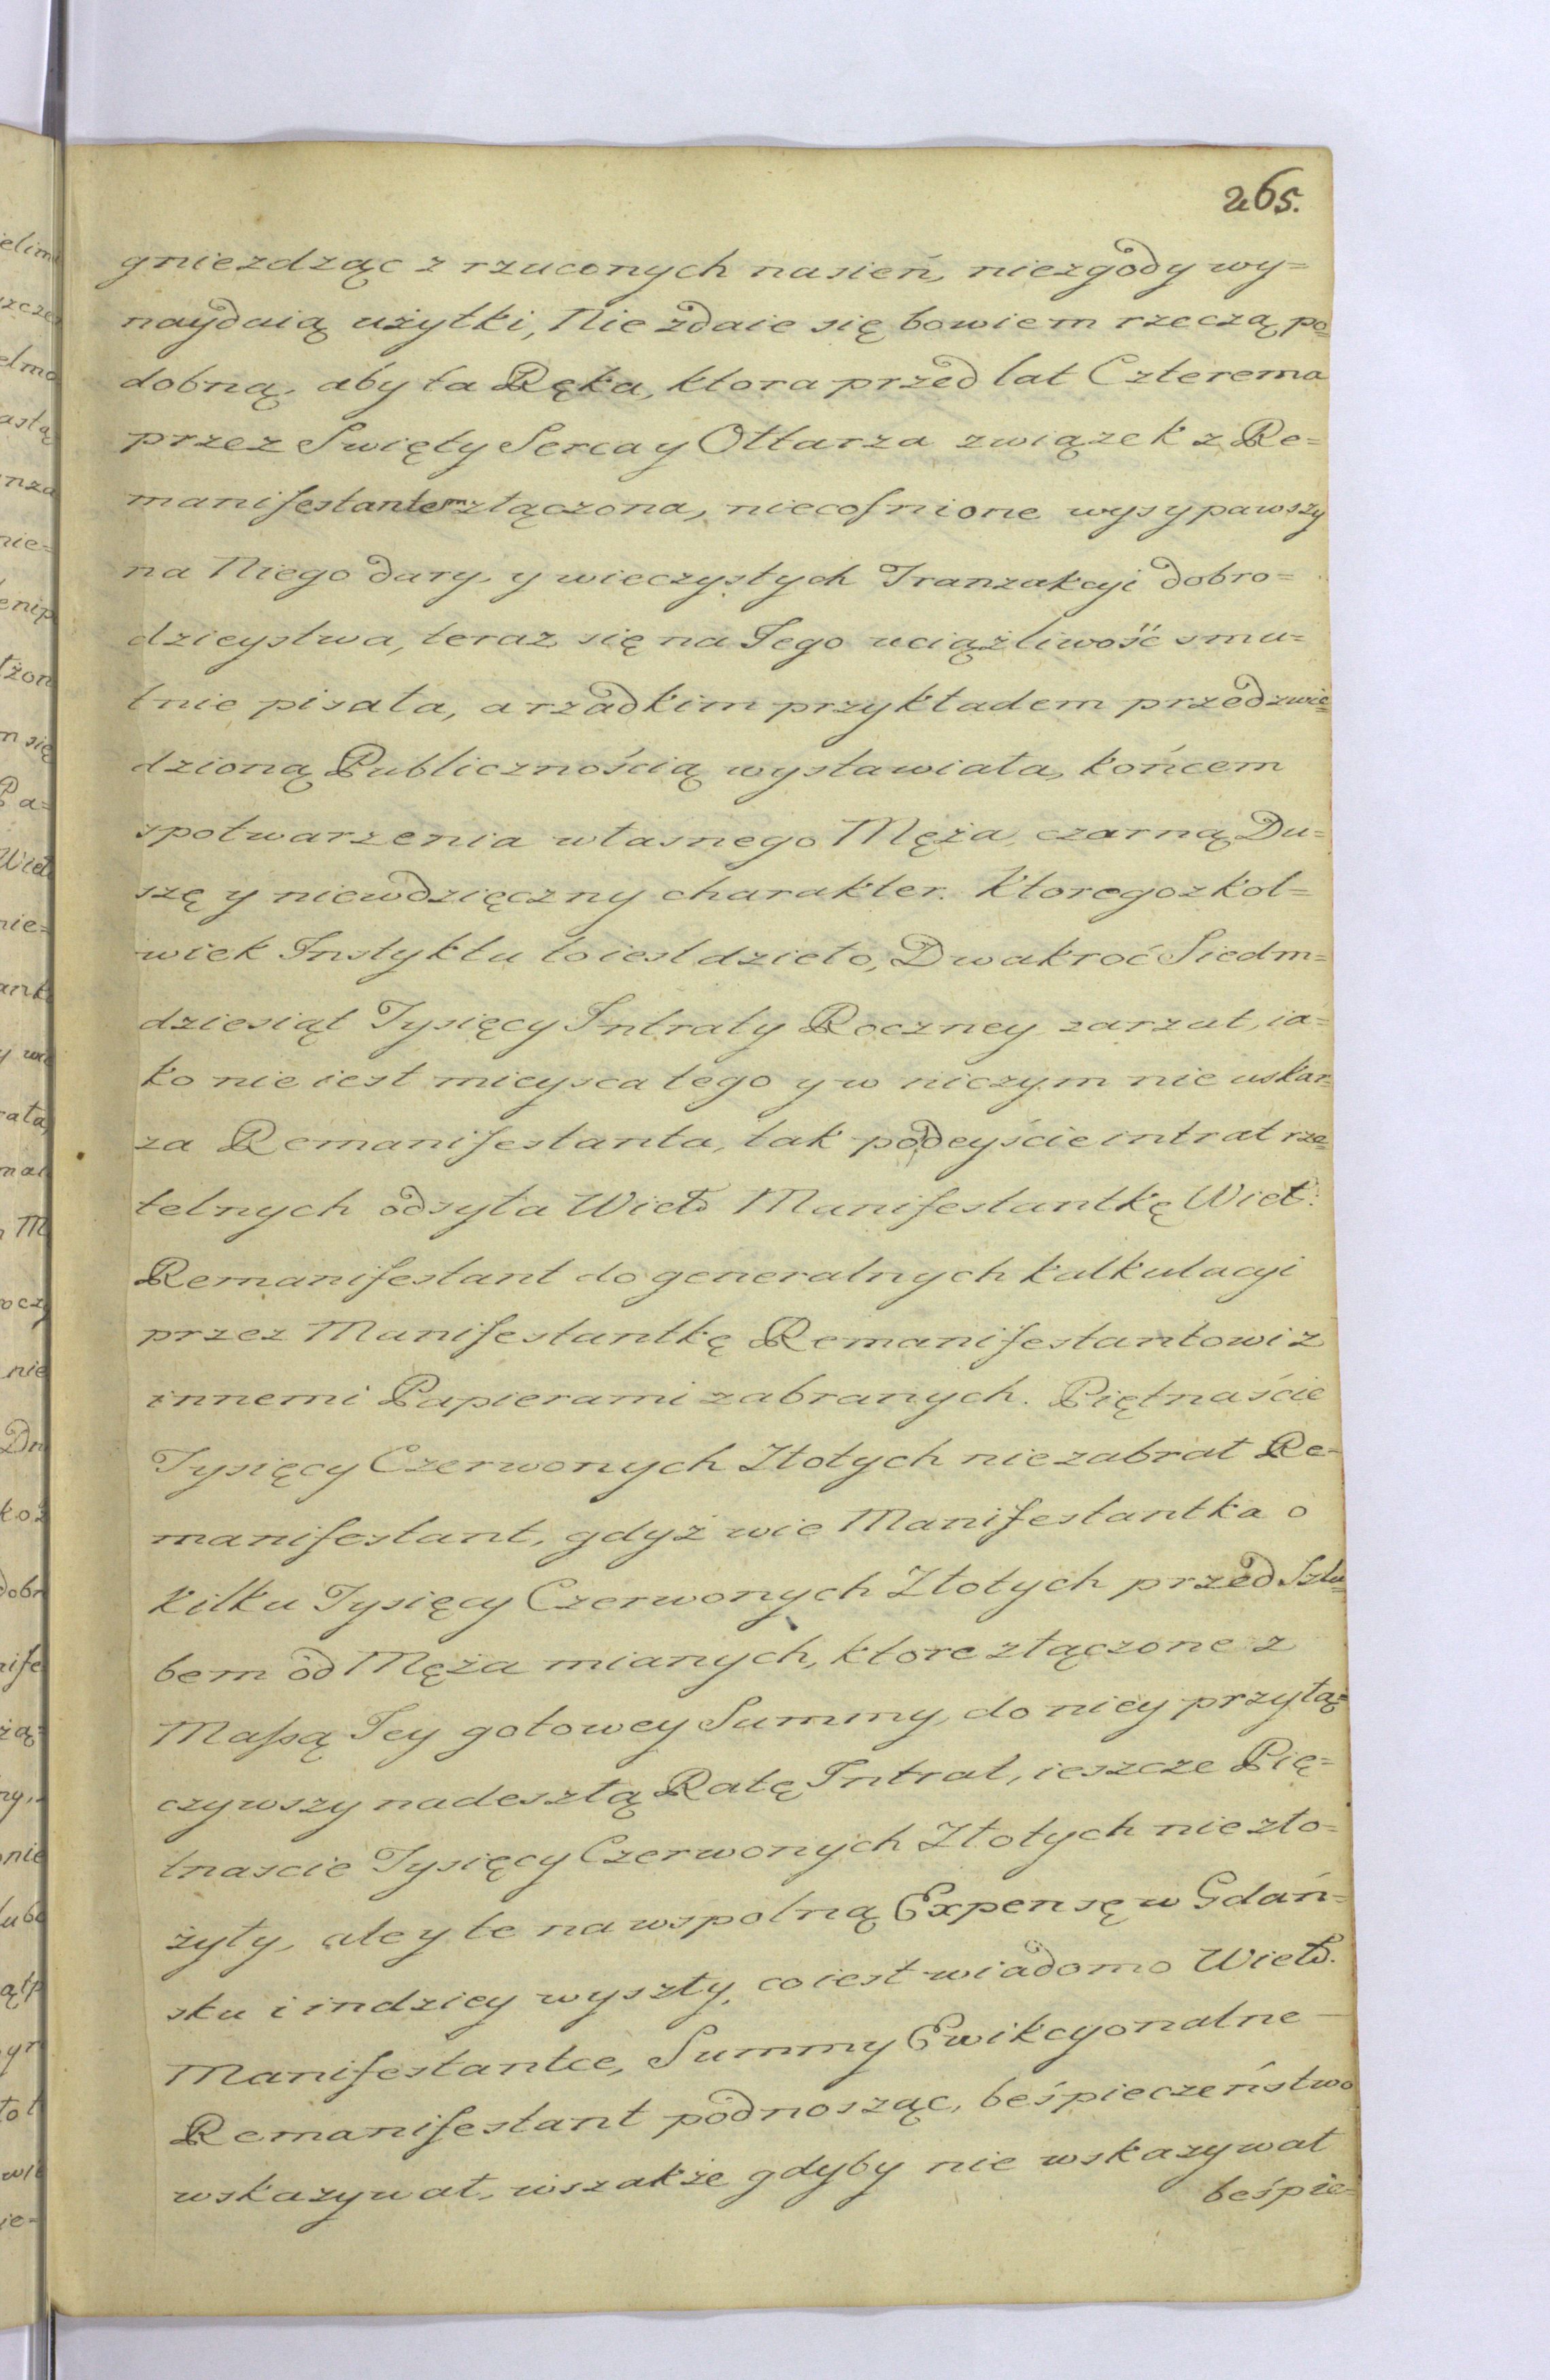 265.
gniezdząc z rzuconych nasień, niezgody wy=
naydaią użytki, Nie zdaie się bowiem rzeczą po=
dobną, aby ta Ręka, ktora przed lat Czterema
przez Swięty Serca y Ołtarza związek z Re=
manifestantem złączona, niecofnione wysypawszy
na Niego dary, y wieczystych Tranzakcyi dobro=
dzieystwa, teraz się na Jego uciążliwość smu=
tnie pisała, a rzadkim przykładem przed zwie=
dzioną Publicznością wystawiała, końcem
spotwarzenia własnego Męża, czarną Du=
szę y niewdzięczny charakter. Ktoregozkol=
wiek Instyktu to iest dzieło, Dwakroć Siedm=
dziesiąt Tysięcy Intraty Roczney zarzut, ia=
ko nie iest mieysca tego y w niczym nie uskar=
za Remanifestanta, tak podeyście intrat rze=
telnych odsyła Wield Manifestantkę Wiel:
Remanifestant do generalnych kalkulacyi
przez Manifestantkę Remanifestantowi z
innemi Papierami zabranych. Piętnaście
Tysięcy Czerwonych Złotych nie zabrał Re=
manifestant, gdyż wie Manifestantka o
kilku Tysięcy Czerwonych Złotych przed Szlu=
bem od Męża mianych, ktore złączone z
Massą Jey gotowey Summy, do niey przyłą=
czywszy nadeszłą Ratę Intrat, ieszcze Pię=
tnascie Tysięcy Czerwonych Złotych nie zło=
żyły, ale y te na wspolną Expensę w Gdań=
sku i indziey wyszły, co iest wiadomo Wield.
Manifestantce, Summy Ewikcyonalne
Remanifestant podnosząc, beśpieczeństwo
wskazywał, wszakże gdyby nie wskazywał
beśpie=